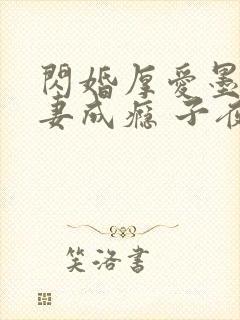 閃婚厚愛墨
妻成瘾 子夜
笑洛書